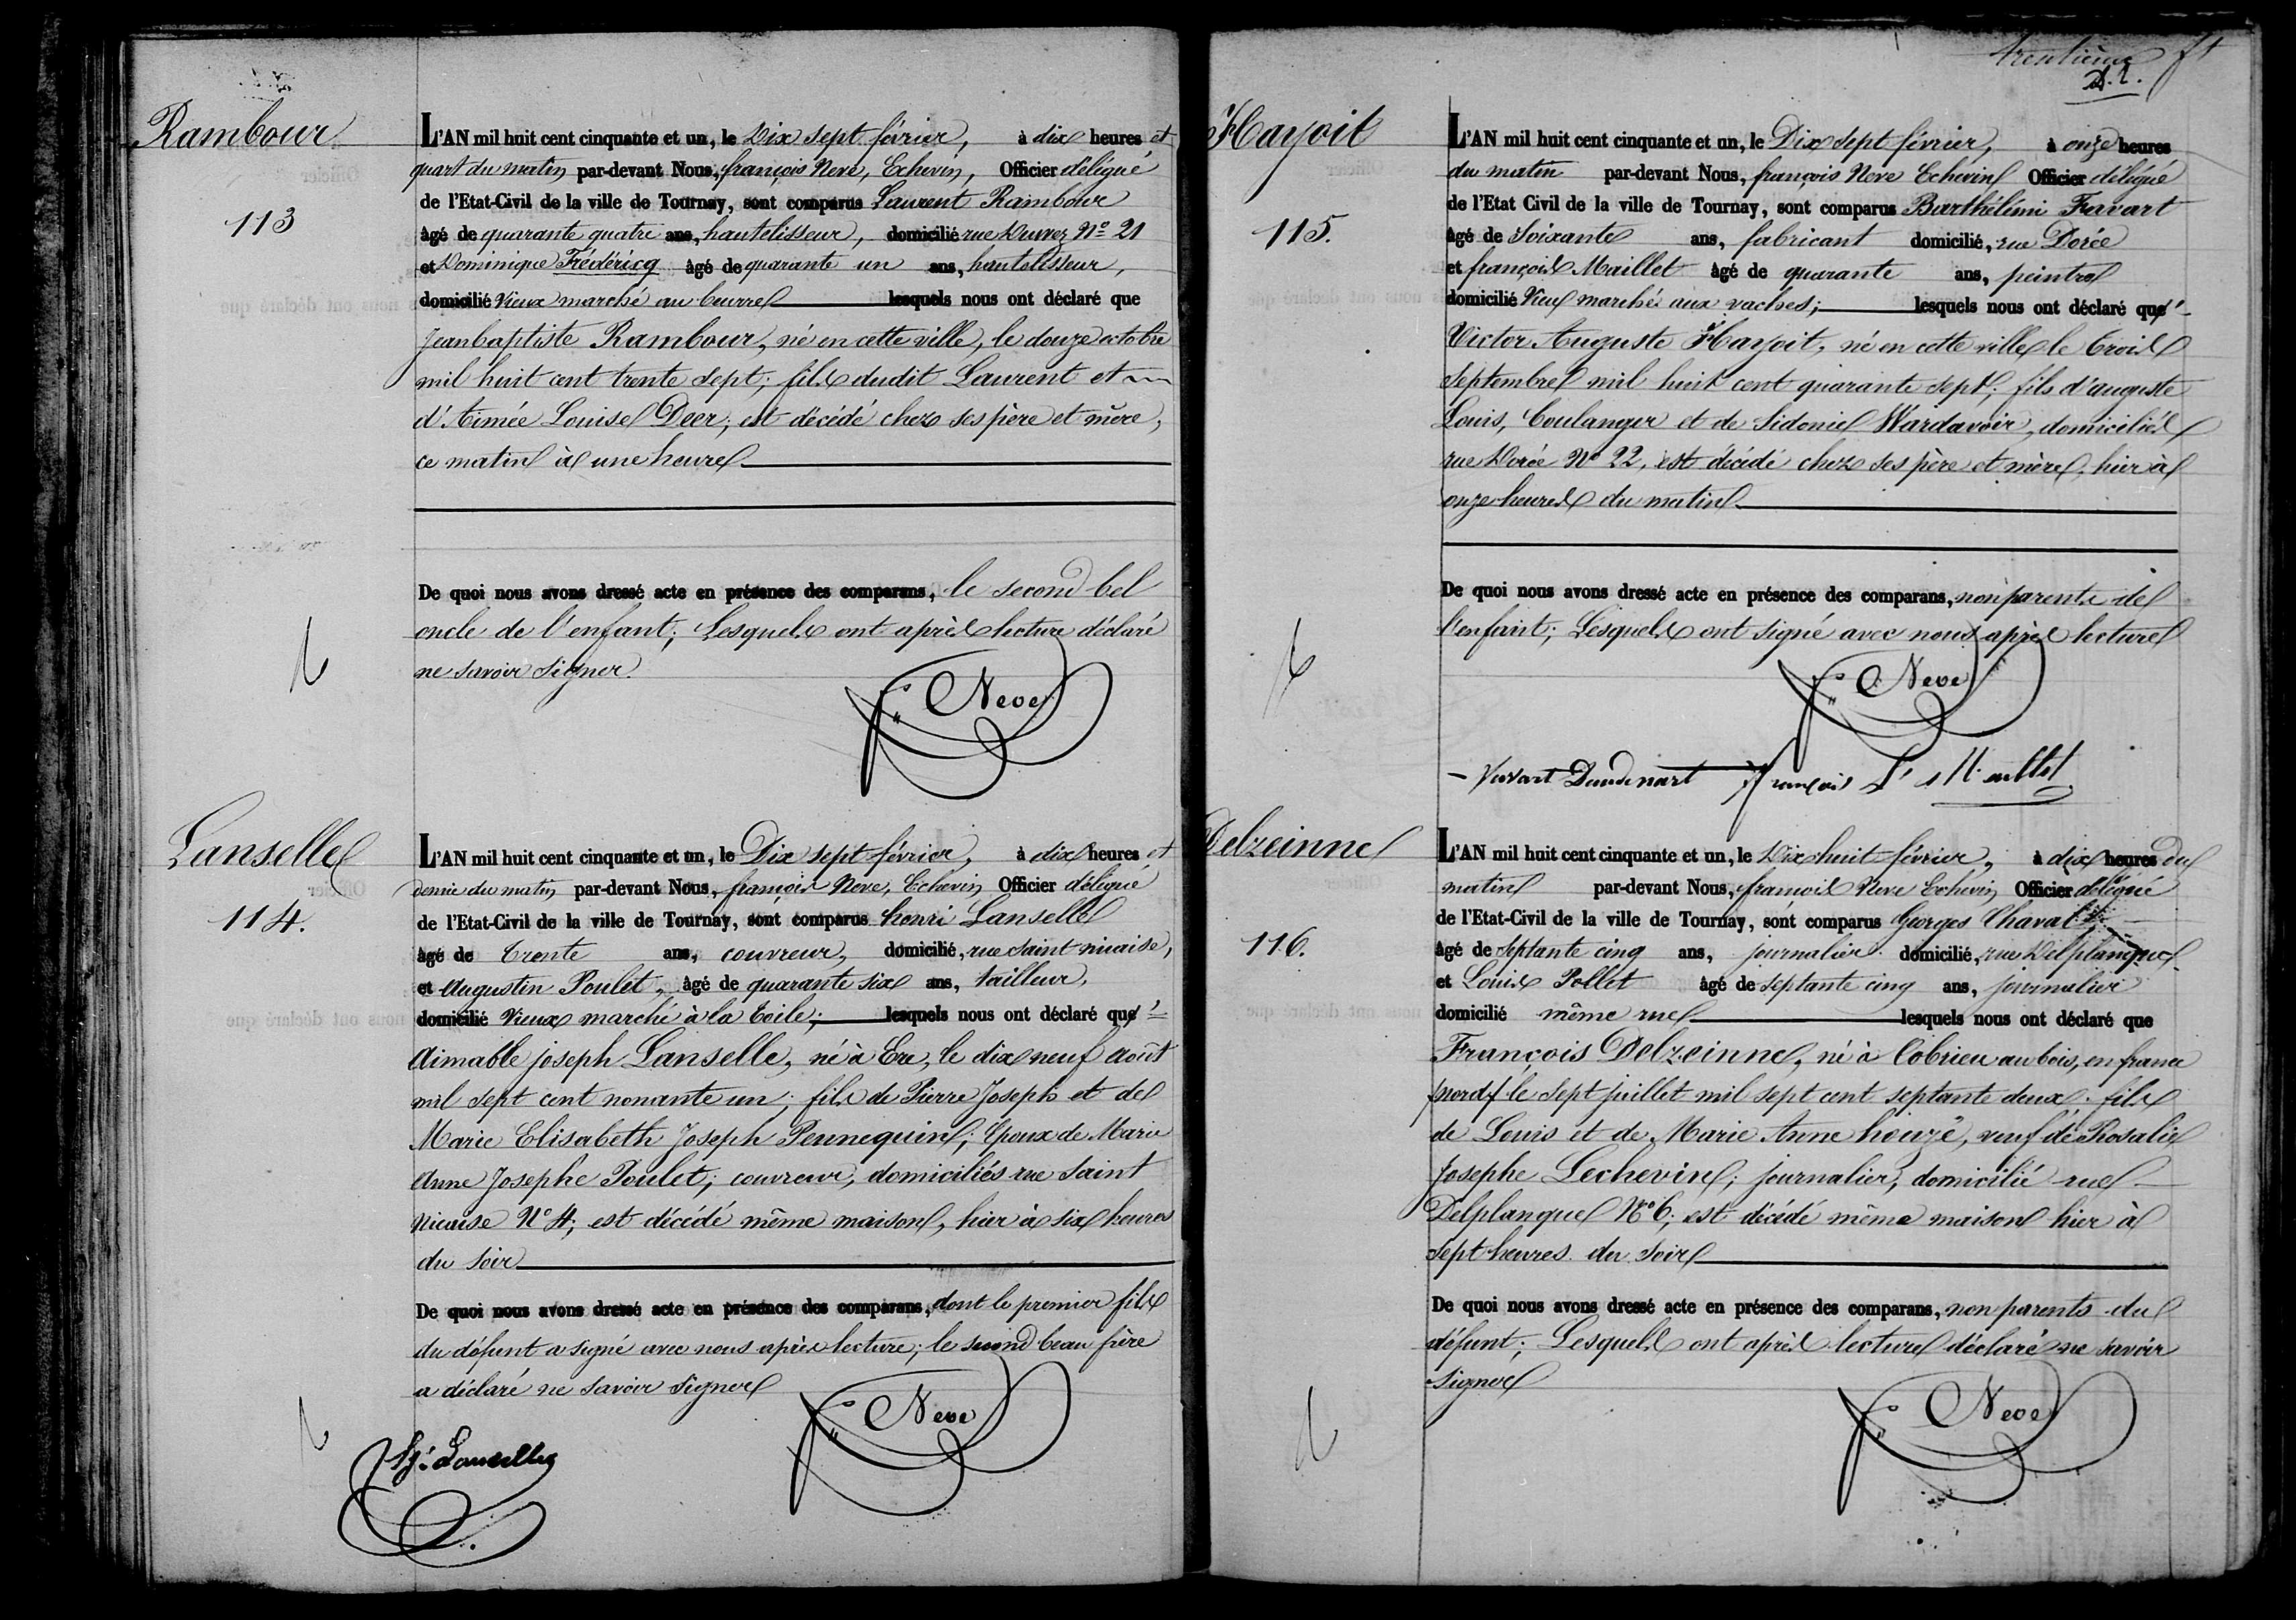 Rambour
113
L'AN mil huit cent cinquante et un, le Dix sept février, à dix heures et
quart du matin par-devant Nous, françois Neve, Echevin, Officier délégué
de l'Etat-Civil de la ville de Tournay, sont comparus Laurent Rambour
âgé de quarante quatre ans, hautelisseur, domicilié rue Duvez N° 21
et Dominique Frédéricq âgé de quarante un ans, hautelisseur,
domicilié Vieux marché au beurre lesquels nous ont déclaré que
Jeanbaptiste Rambour, né en cette ville, le douze octobre
mil huit cent trente sept; fils dudit Laurent et
d'Aimée Louise Deer; est décédé chez ses père et mère,
ce matin à une heure
De quoi nous avons dressé acte en présence des comparans, le second bel
oncle de l'enfant; Lesquels ont après lecture déclaré
ne savoir signer.
f. Neve
Lanselle
114.
L'AN mil huit cent cinquante et un, le Dix sept février, à dix heures et
demie du matin par-devant Nous, françois Neve, Echevin Officier délégué
de l'Etat-Civil de la ville de Tournay, sont comparus henri Lanselle
âgé de trente ans, couvreur, domicilié, rue Saint nicaise,
et Augustin Poulet, âgé de quarante six ans, tailleur,
domicilié Vieux marché à la toile; lesquels nous ont déclaré qu'
Aimable joseph Lanselle, né à Ere, le dix neuf août
mil sept cent nonante un; fils de Pierre Joseph et de
Marie Elisabeth Joseph Pennequin; Epoux de Marie
Anne Josephe Poulet; couvreur, domiciliés rue Saint
Nicaise N° 4; est décédé même maison, hier à six heures
du soir
De quoi nous avons dressé acte en présence des comparans, dont le premier fils
du défunt a signé avec nous après lecture; le second beau frère
a déclaré ne savoir signer
f. Neve
hj. Lanselle
trentième ft
Hayoit
115.
L'AN mil huit cent cinquante et un, le Dix sept février, à onze heures
du matin par-devant Nous, françois Neve Echevin Officier délégué
de l'Etat Civil de la ville de Tournay, sont comparus Barthélémi Favart
âgé de Soixante ans, fabricant domicilié, rue Dorée
et françois Maillet âgé de quarante ans, peintre
domicilié Vieux marché aux vaches; lesquels nous ont déclaré que
Victor Auguste Hayoit, né en cette ville le trois
septembre mil huit cent quarante sept; fils d'auguste
Louis, boulanger et de Sidonie Wardavoir, domiciliés
rue Dorée N° 22, est décédé chez ses père et mère, hier à
onze heures du matin
De quoi nous avons dressé acte en présence des comparans, non parents de
l'enfant; Lesquels ont signé avec nous après lecture
f. Neve
françois
Delzeinne
116.
L'AN mil huit cent cinquante et un, le Dix huit février, à dix heures du
matin par-devant Nous, françois Neve Echevin Officier délégué
de l'Etat-Civil de la ville de Tournay, sont comparus Georges Chaval
âgé de septante cinq ans, journalier domicilié, rue Delplanque
et Louis Pollet âgé de septante cinq ans, journalier
domicilié même rue lesquels nous ont déclaré que
François Delzeinne, né à Cobrieu au bois, en france
/nord/ le sept juillet mil sept cent septante deux; fils
de Louis et de Marie Anne houzé, veuf de Rosalie
Josephe Lechevin; journalier, domicilié rue
Delplanque N° 6; est décédé même maison hier à
sept heures du soir
De quoi nous avons dressé acte en présence des comparans, non parents du
défunt; Lesquels ont après lecture déclaré ne savoir
signer
f. Neve